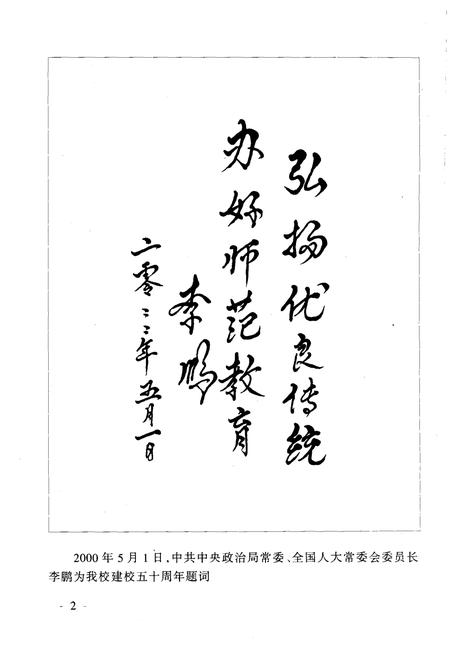 弘扬优良传统
办好师范教育
李鹏
二零零零年五月一日
2000年5月1日,中共中央政治局常委、全国人大常委会委员长
李鹏为我校建校五十周年题词
- 2 -